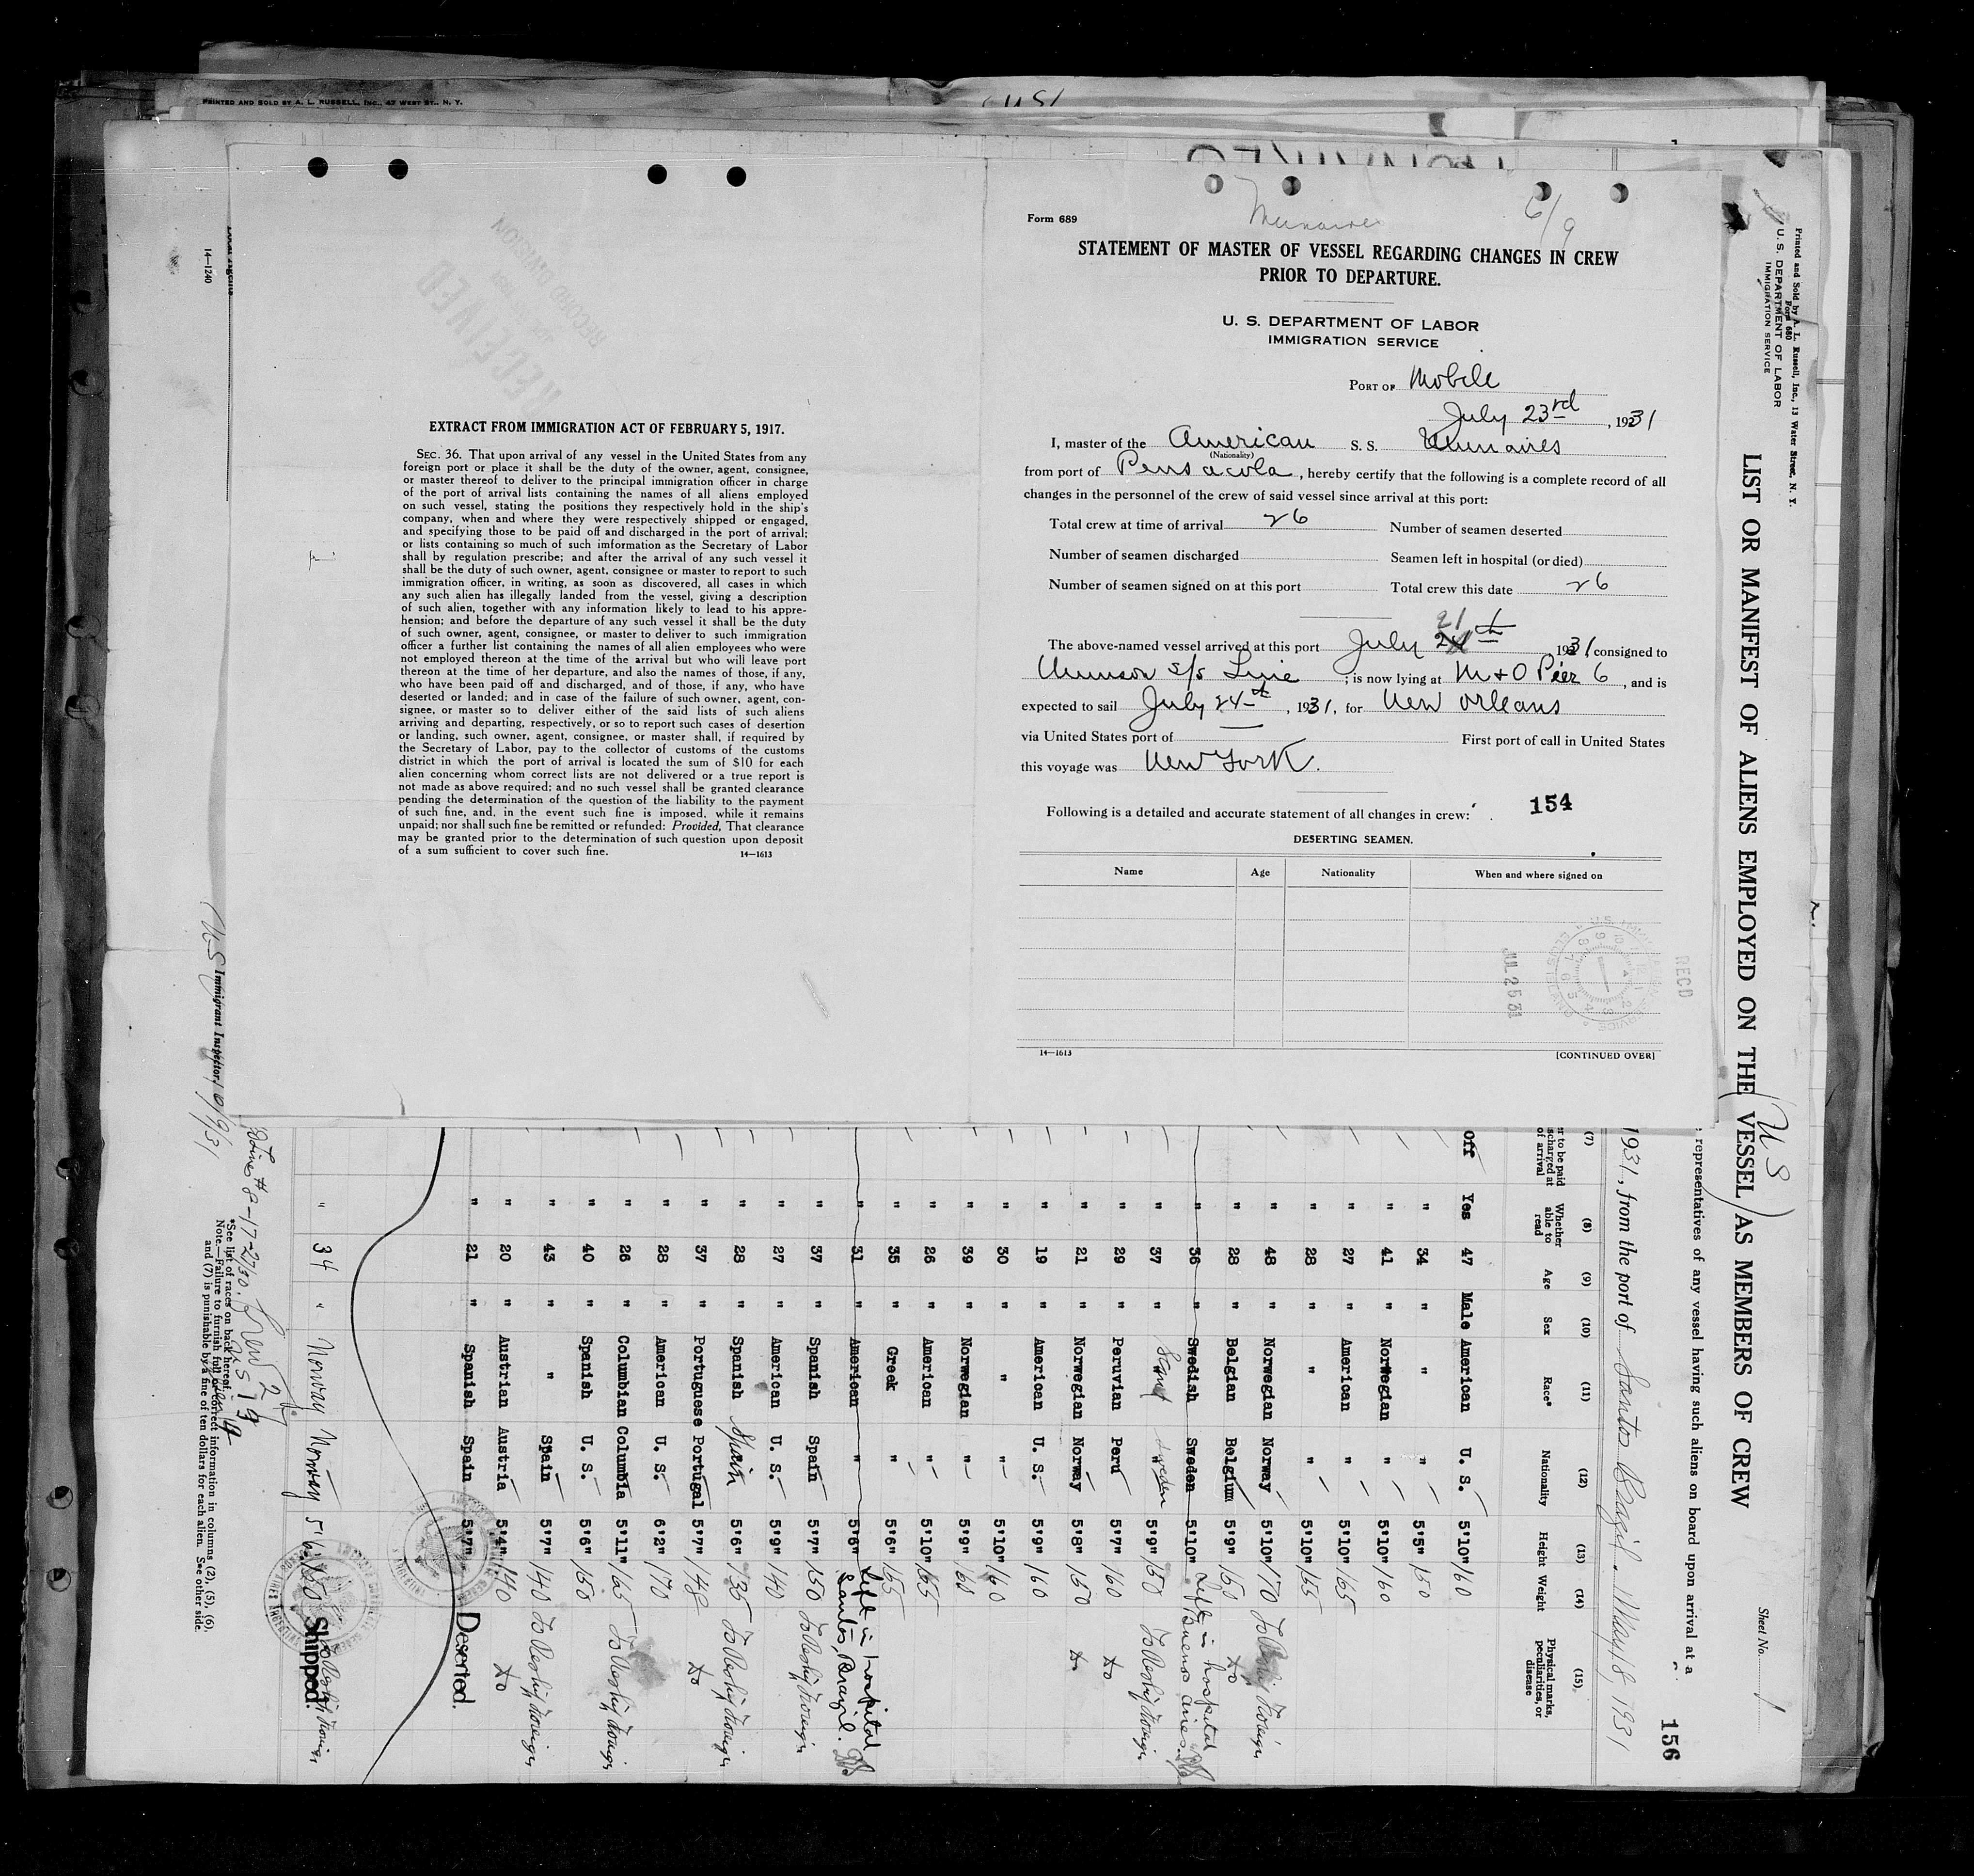 PRINTED AND SOLD BY A. L. RUSSELL, INC., 47 WEST ST., N. Y.
14—1240
RECEIVED
RECORD DIVISION
EXTRACT FROM IMMIGRATION ACT OF FEBRUARY 5, 1917.
SEC. 36. That upon arrival of any vessel in the United States from any
foreign port or place it shall be the duty of the owner, agent, consignee,
or master thereof to deliver to the principal immigration officer in charge
of the port of arrival lists containing the names of all aliens employed
on such vessel, stating the positions they respectively hold in the ship's
company, when and where they were respectively shipped or engaged,
and specifying those to be paid off and discharged in the port of arrival;
or lists containing so much of such imformation as the Secretary of Labor
shall by regulation prescribe; and after the arrival of any such vessel it
shall be the duty of such owner, agent, consignee or master to report to such
immigration officer, in writing, as soon as discovered, all cases in which
any such alien has illegally landed from the vessel, giving a description
of such alien, together with any information likely to lead to his appre-
hension; and before the departure of any such vessel it shall be the duty
of such owner, agent, consignee, or master to deliver to such immigration
officer a further list containing the names of all alien employees who were
not employed thereon at the time of the arrival but who will leave port
thereon at the time of her departure, and also the names of those, if any,
who have been paid off and discharged, and of those, if any, who have
deserted or landed; and in case of the failure of such owner, agent, con-
signee, or master so to deliver either of the said lists of such aliens
arriving and departing, respectively, or so to report such cases of desertion
or landing, such owner, agent, consignee, or master shall, if required by
the Secretary of Labor, pay to the collector of customs of the customs
district in which the port of arrival is located the sum of $10 for each
alien concerning whom correct lists are not delivered or a true report is
not made as above required; and no such vessel shall be granted clearance
pending the determination of the question of the liability to the payment
of such fine, and, in the event such fine is imposed, while it remains
unpaid; nor shall such fine be remitted or refunded: Provided, That clearance
may be granted prior to the determination of such question upon deposit
of a sum sufficient to cover such fine.
14—1613
Form 689
Munaires
6/9
STATEMENT OF MASTER OF VESSEL REGARDING CHANGES IN CREW
PRIOR TO DEPARTURE.
U. S. DEPARTMENT OF LABOR
IMMIGRATION SERVICE
PORT OF Mobile
July 23rd, 1931
I, master of the American S. S. Munaires
(Nationality)
from port of Pensacola, hereby certify that the following is a complete record of all
changes in the personnel of the crew of said vessel since arrival at this port:
Total crew at time of arrival 26 Number of seamen deserted
Number of seamen discharged Seamen left in hospital (or died)
Number of seamen signed on at this port Total crew this date 26
21
The above-named vessel arrived at this port July 1931, consigned to
Munson S/S Line; is now lying at M & O Pier 6, and is
expected to sail July 24th, 1931, for New Orleans
via United States port of First port of call in United States
this voyage was New York.
Following is a detailed and accurate statement of all changes in crew:
154
DESERTING SEAMEN.
Name Age Nationality When and where signed on
JUL 25 31
RECD
14—1613
[CONTINUED OVER]
Printed and Sold by A. L. Russell, Inc., 13 Water Street, N. Y.
Form 680
U. S. DEPARTMENT OF LABOR
IMMIGRATION SERVICE
Sheet No. 1
LIST OR MANIFEST OF ALIENS EMPLOYED ON THE VESSEL AS MEMBERS OF CREW
U S
representatives of any vessel having such aliens on board upon arrival at a
156
1931, from the port of Santos Brazil. May 18 1931
(7) (8) (9) (10) (11) (12) (13) (14) (15)
Whether able to read Age Sex Race* Nationality Height Weight Physical marks, peculiarities, or disease
Off Yes 47 Male American U. S. 5'10" 160
" 34 " " " 5'5" 150
" 41 " Norwegian " 5'10" 160
" 27 " American " 5'10" 165
" 28 " " " 5'10" 155
" 48 " Norwegian Norway 5'10" 170 To Reship Foreign
" 28 " Belgian Belgium 5'9" 150 do
" 36 " Swedish Sweden 5'10" Left in hospital Buenos Aires.
" 37 " Scand Sweden 5'9" 150 To Reship Foreign
" 29 " Peruvian Peru 5'7" 160 do
" 21 " Norwegian Norway 5'8" 150 do
" 19 " American U. S. 5'9" 160
" 30 " " " 5'10" 160
" 39 " Norwegian " 5'9" 160
" 26 " American " 5'10" 165
" 35 " Greek " 5'6" 155
" 31 " American " 5'6" Left in hospital Santos, Brazil.
" 37 " Spanish Spain 5'7" 150 To Reship Foreign
" 27 " American U. S. 5'9" 140
" 28 " Spanish Spain 5'6" 135 To Reship Foreign
" 37 " Portuguese Portugal 5'7" 148 do
" 28 " American U. S. 6'2" 170
" 26 " Columbian Columbia 5'11" 165 To Reship Foreign
" 40 " Spanish U. S. 5'6" 150
" 43 " " Spain 5'7" 140 To Reship Foreign
" 20 " Austrian Austria 5'4" 140 do
" 21 " Spanish Spain 5'7" Deserted.
" 34 " Norway Norway 5'6" 150 Shipped To Reship Foreign
Immigrant Inspector.
*See list of races on back hereof.
Note.—Failure to furnish full or correct information in columns (2), (5), (6),
and (7) is punishable by a fine of ten dollars for each alien. See other side.